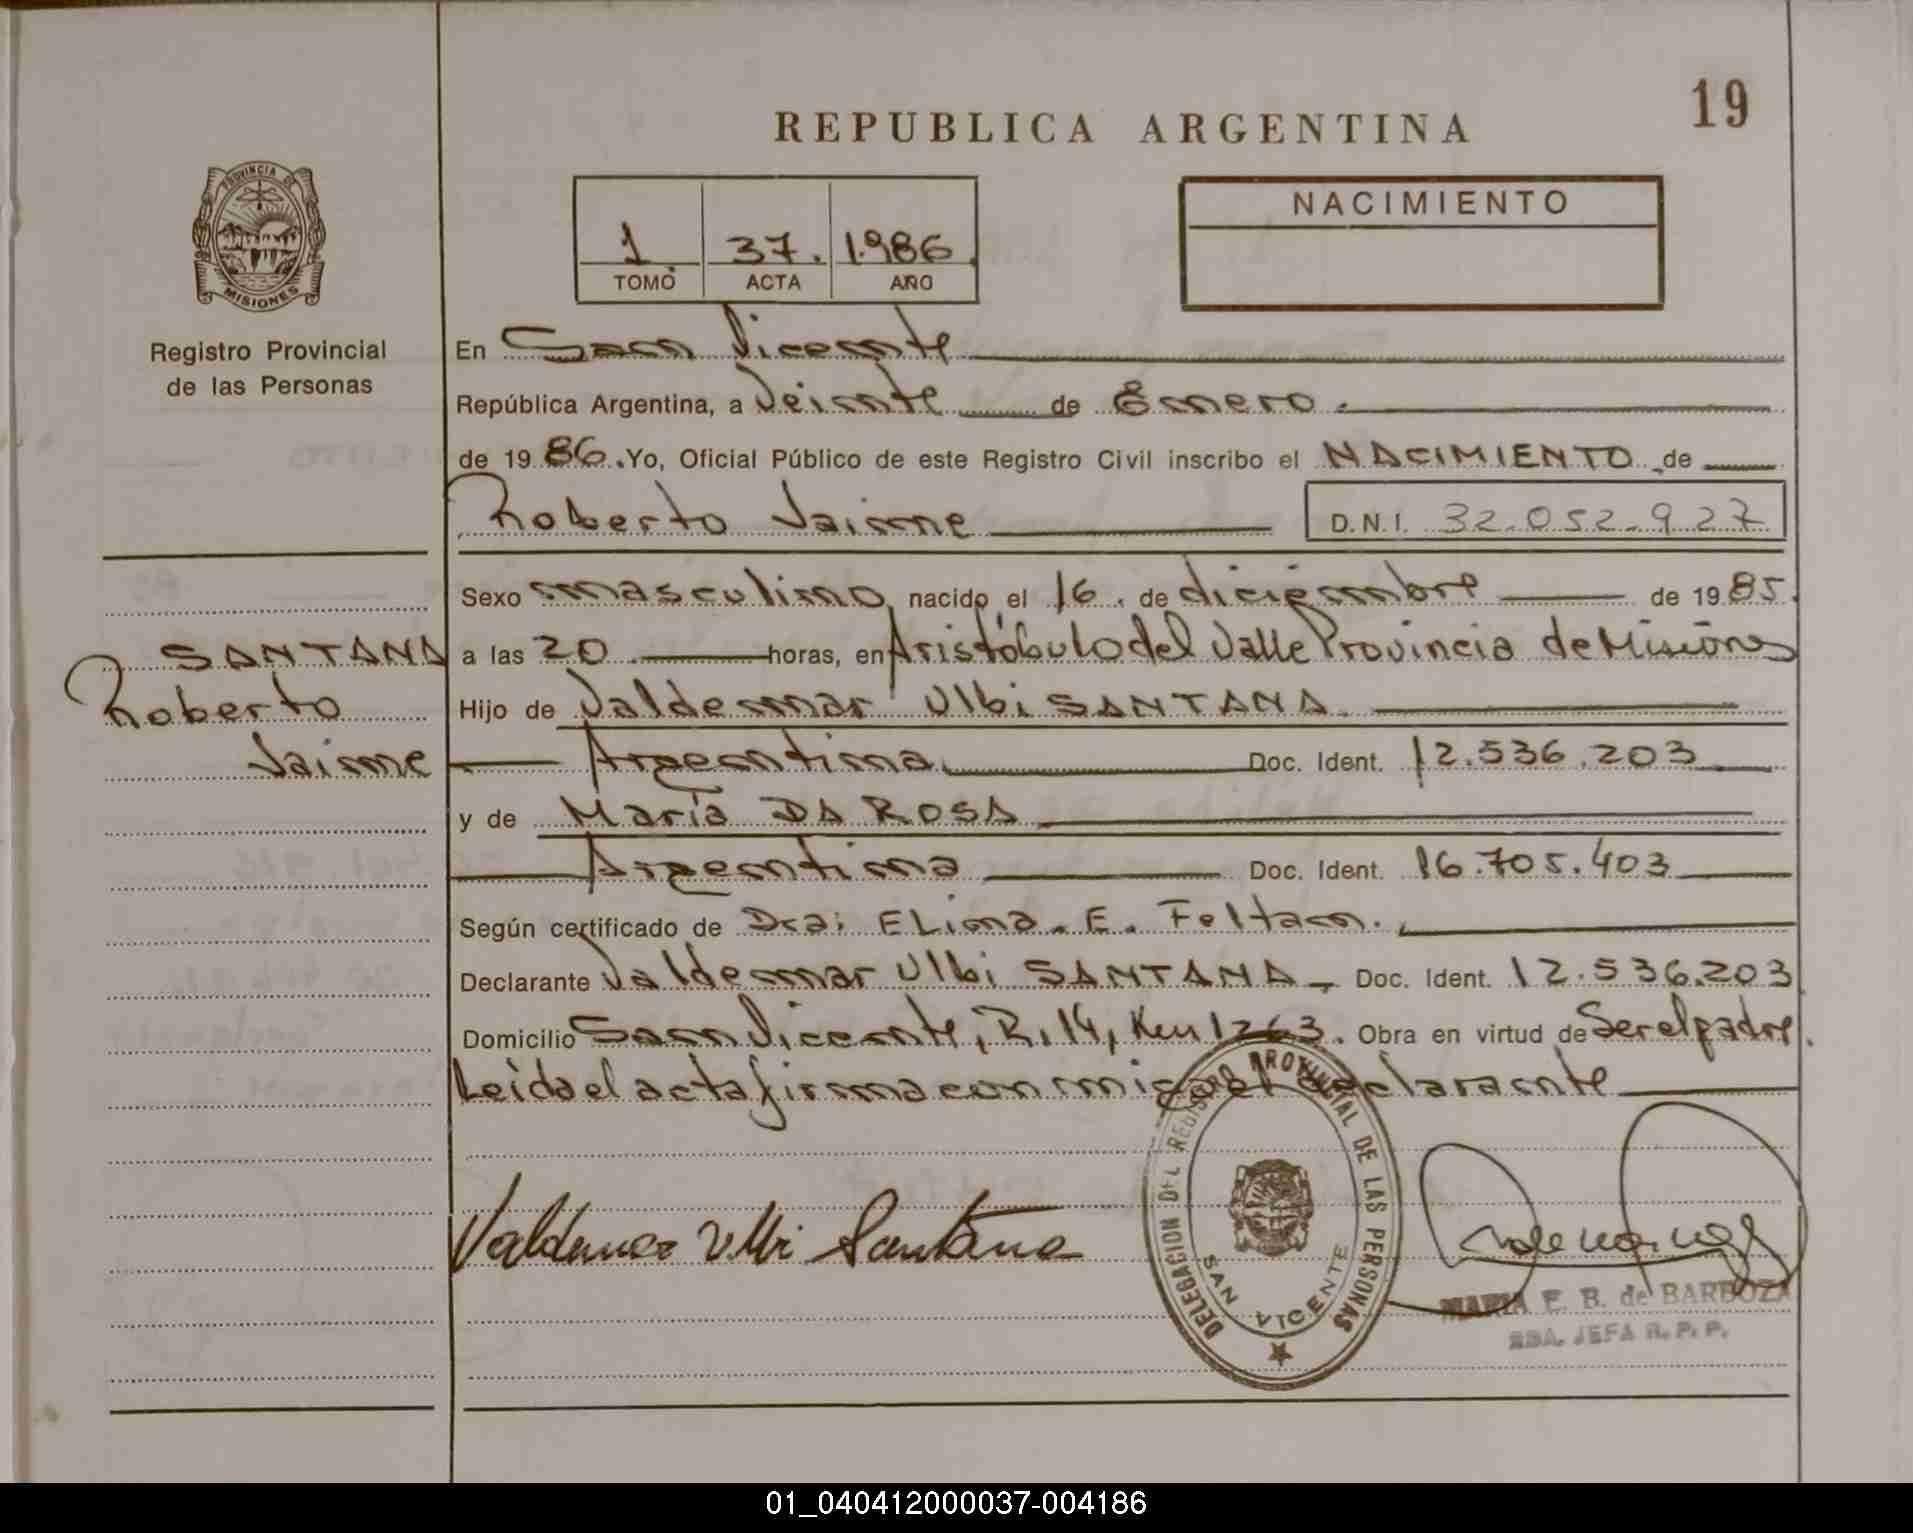 19
REPUBLICA ARGENTINA
PROVINCIA DE
MISIONES
Registro Provincial
de las Personas
1 37. 1.986
TOMO ACTA AÑO
NACIMIENTO
En San Vicente
República Argentina, a Veinte de Enero.
de 1986. Yo, Oficial Público de este Registro Civil inscribo el NACIMIENTO de
Roberto Jaime D.N.I. 32.052.927
Sexo masculino nacido el 16. de diciembre de 1985.
SANTANA
Roberto
Jaime
a las 20 horas, en Aristóbulo del Valle Provincia de Misiones
Hijo de Valdemar Ulbi SANTANA.
Argentina. Doc. Ident. 12.536.203
y de María DA ROSA
Argentina Doc. Ident. 16.705.403
Según certificado de Dra: ELina. E. Feltan.
Declarante Valdemar Ulbi SANTANA, Doc. Ident. 12.536.203
Domicilio San Vicente, R. 14, Km 1263. Obra en virtud de Ser el padre.
Leida el acta firma conmigo el declarante
Valdemar Ulbi Santana
DELEGACION DEL REGISTRO PROVINCIAL DE LAS PERSONAS
SAN VICENTE
MARIA E. B. de BARBOZA
JEFA R. P. P.
01_040412000037-004186